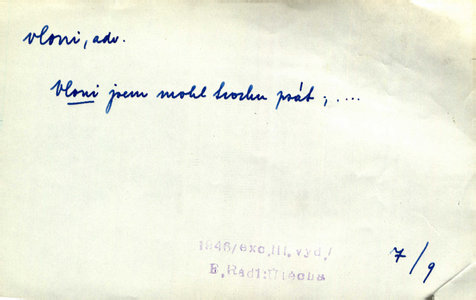 vloni, adv.
Vloni jsem mohl trochu psát; ....
1946/exc.III.vyd./
E.Rádl:Útěcha
7/9